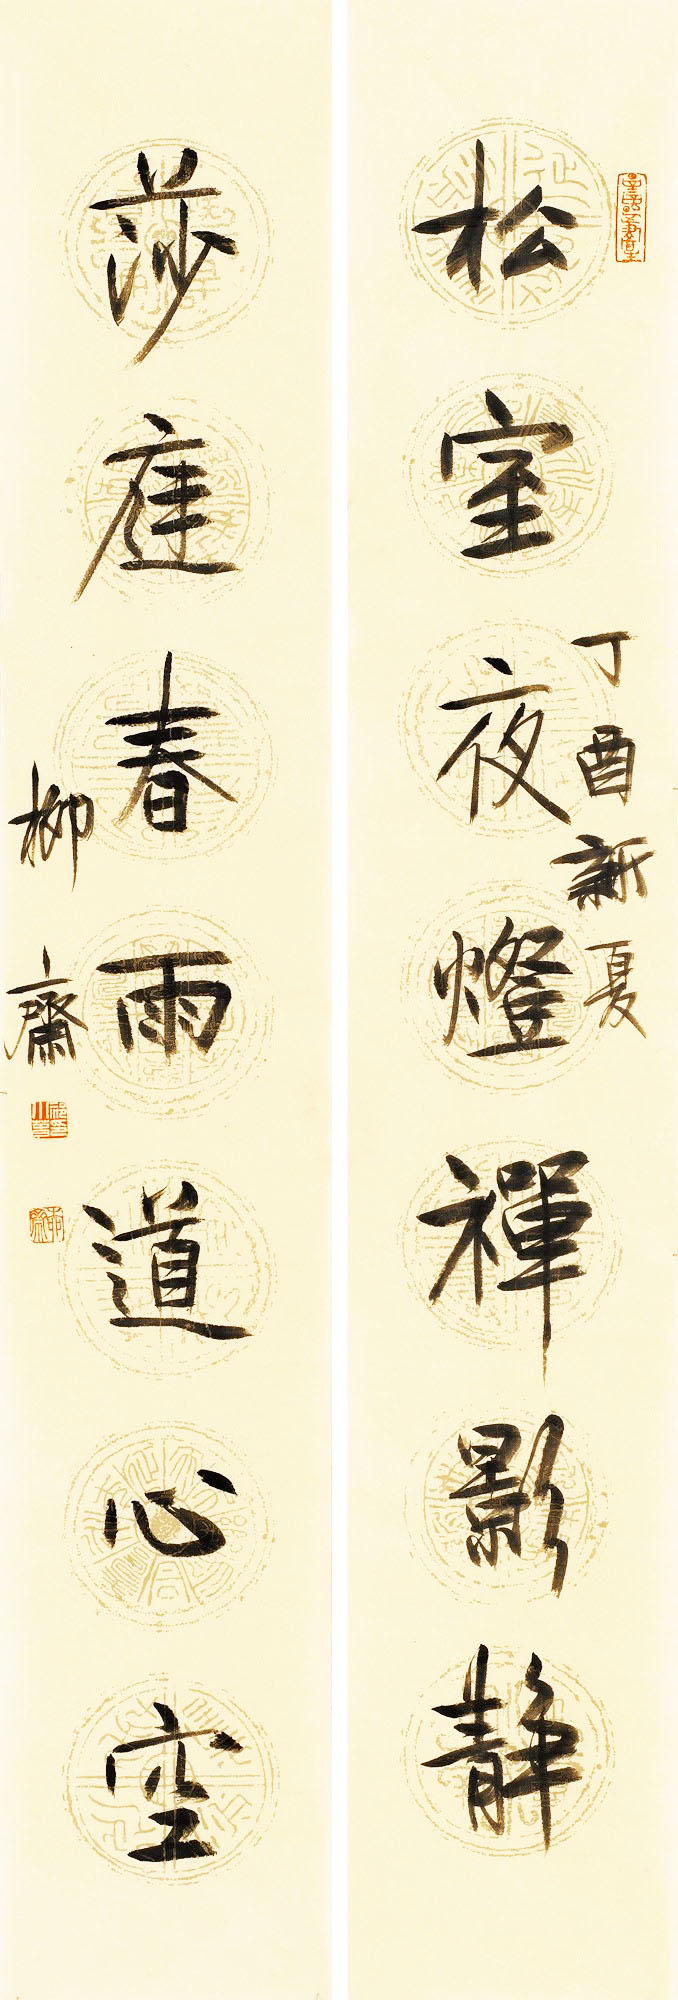 松室夜燈禪影靜
丁酉新夏
莎庭春雨道心空
柳齋